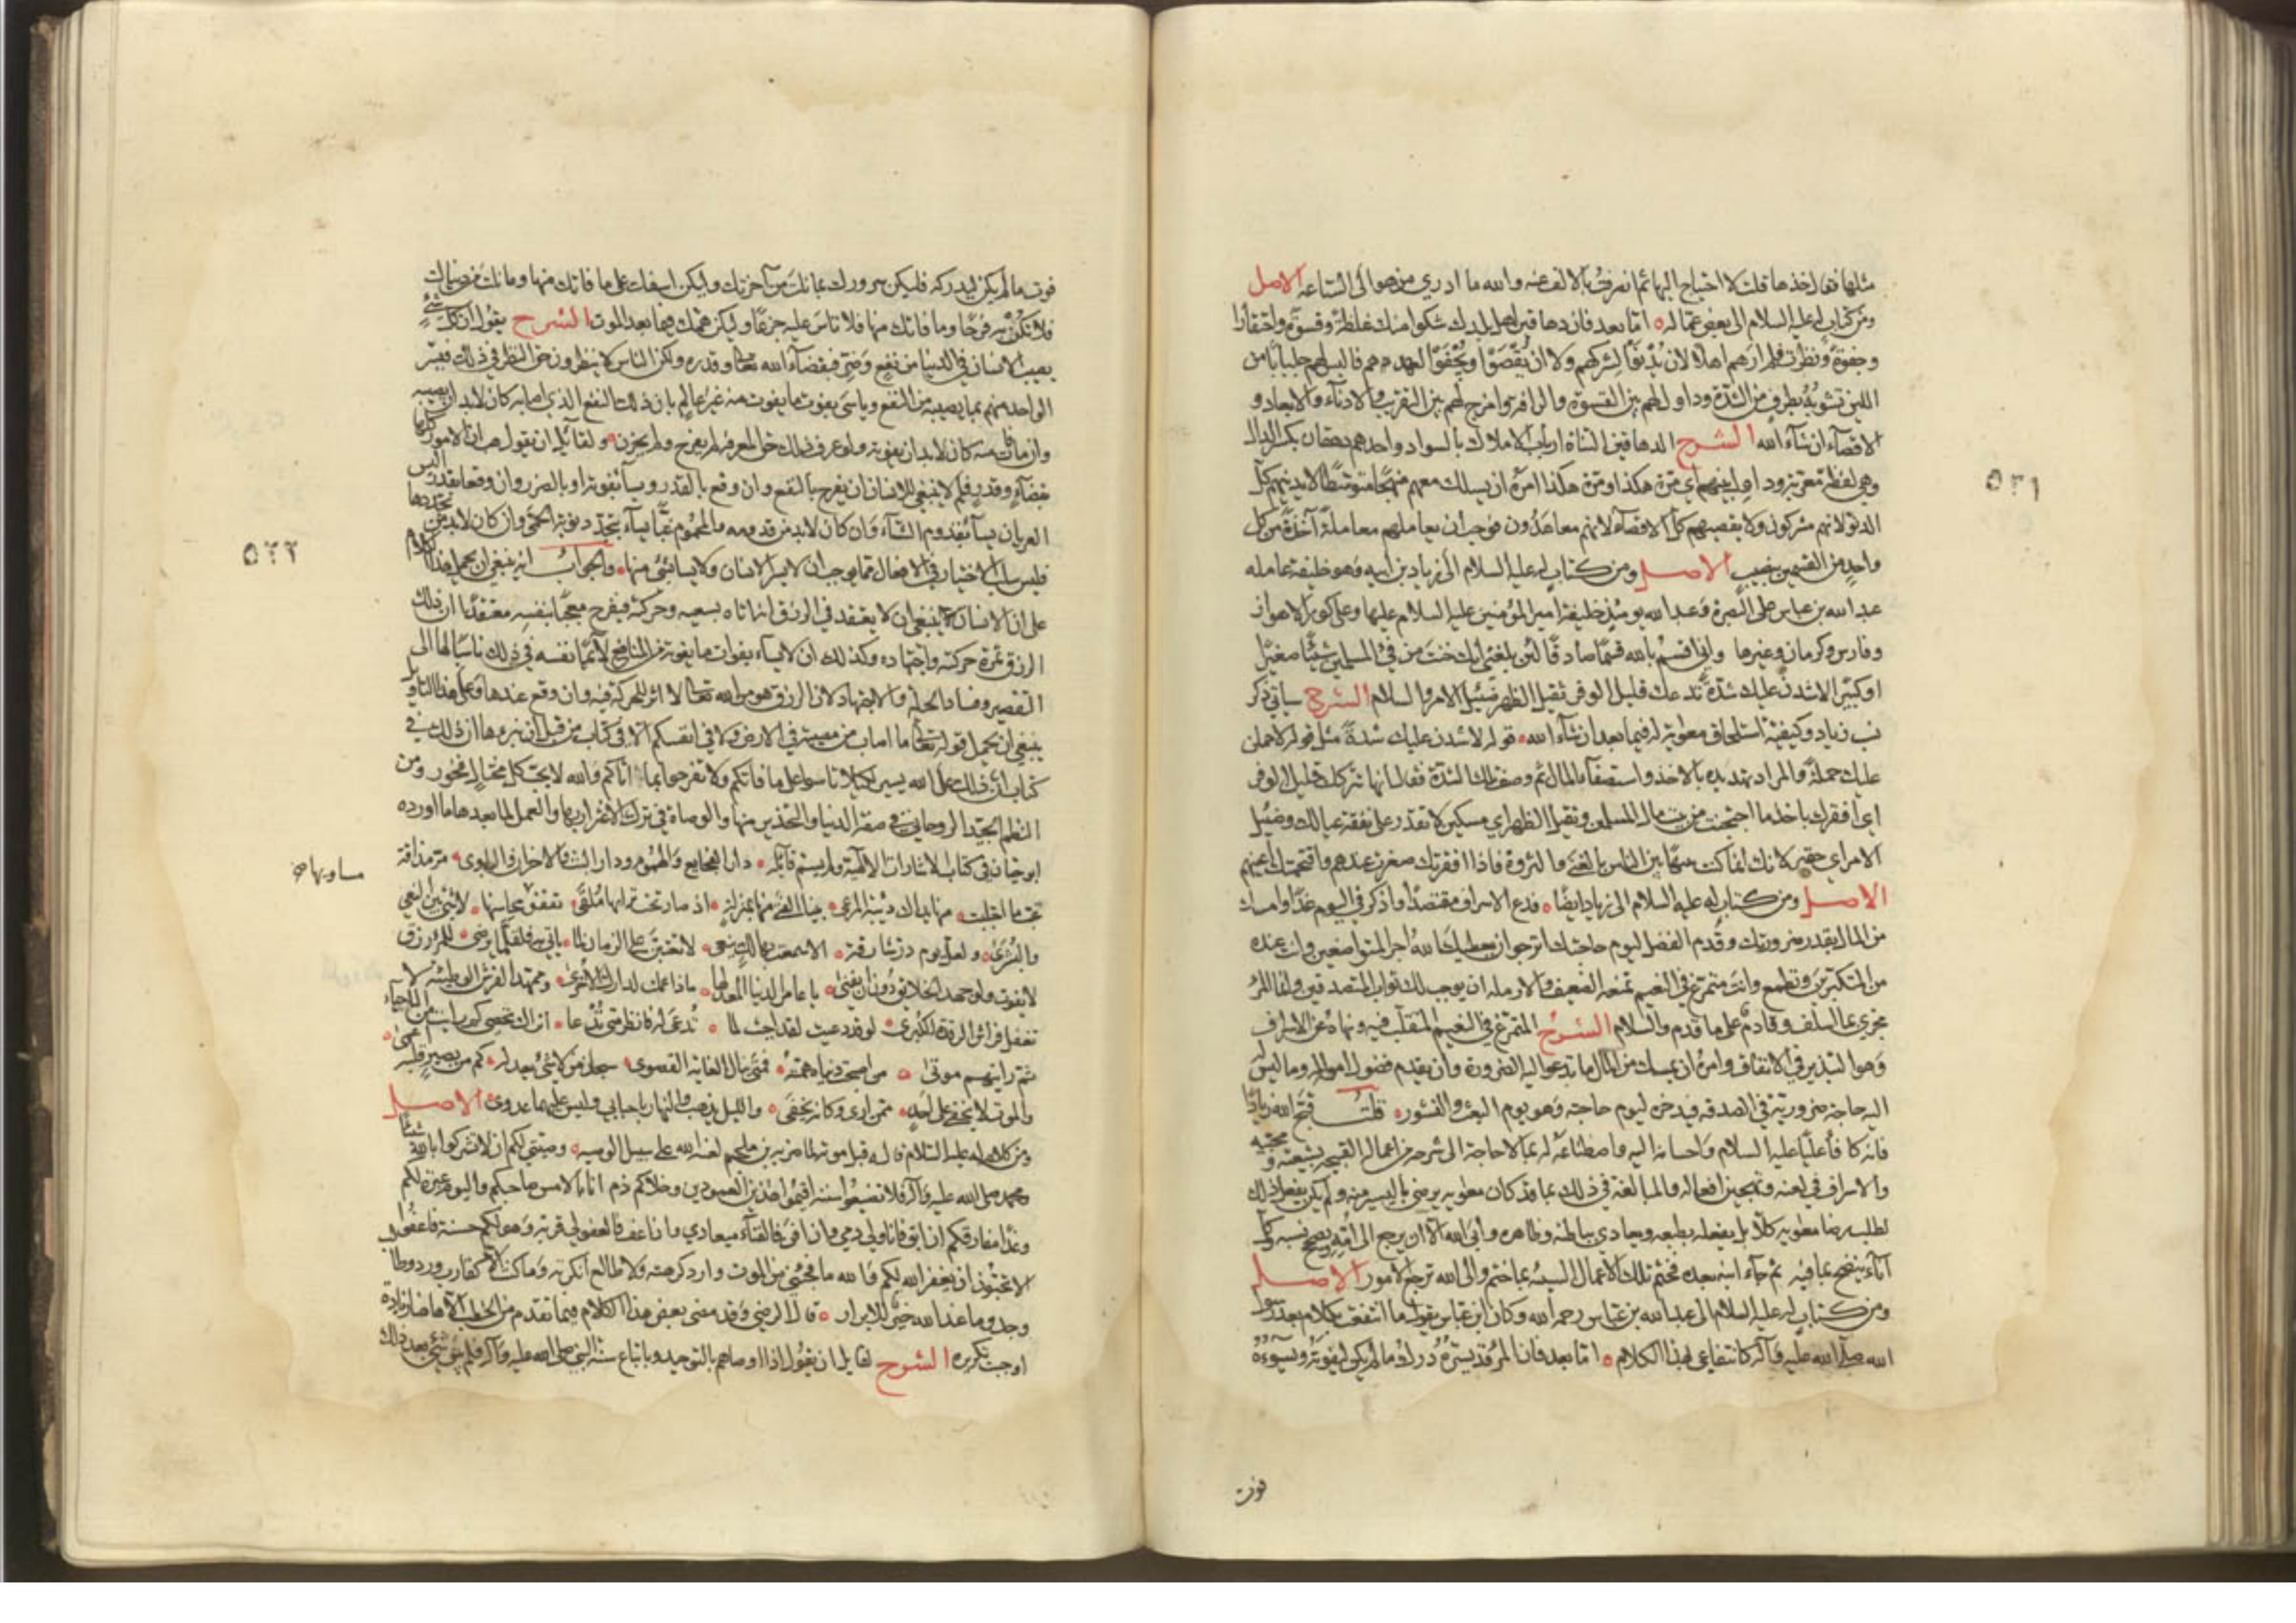 مثلها نفار اخذها قلت لا احتياج البهائم انصرف بالالف عنه والله ما ادري من هو الى الساعه الاصل
ومن كتاب له عليه السلام الى بعض عماله اما بعد فان دهاقين اهل بلدك شكوا منك غلظة وقسوة واحتقارا
وجفوة ونظرت فلم ارهم اهلا لان يدنوا لشركهم ولا ان يقصوا ويجفوا لعهدهم فالبس لهم جلبابا من
اللين تشوبه بطرف من الشدة وداول لهم بين القسوة والرافه وامزج لهم بين التقريب والادناء والابعاد و
الاقصاء ان شاء الله الشرح الدهاقين التناة ارباب الاملاك بالسواد واحدهم دهقان بكسر الدال
وهي لفظة معربة وداول بينهم اي مرة هكذا ومرة هكذا امره ان يسلك معهم منهجا متوسطا لا يدنيهم كل
الدنو لانهم مشركون ولا يقصيهم كل الاقصاء لانهم معاهدون فوجب ان يعاملهم معاملة آخذة من كل
واحد من القسمين بنصيب الاصل ومن كتاب له عليه السلام الى زياد بن ابيه وهو خليفة عامله
عبد الله بن عباس على البصرة وعبد الله يومئذ خليفة امير المؤمنين عليه السلام عليها وعلى كور الاهواز
وفارس وكرمان وغيرها واني اقسم بالله قسما صادقا لئن بلغني انك خنت من فيء المسلمين شيئا صغيرا
او كبيرا لاشدن عليك شدة تدعك قليل الوفر ثقيل الظهر ضئيل الامر والسلام الشرح سياتي ذكر
نسب زياد وكيفية استلحاق معوية له فيما بعد ان شاء الله قوله لاشدن عليك شدة مثل قوله لاحملن
عليك حملة والمراد تهديده بالاخذ واستصفاء المال ثم وصف تلك الشدة فقال انها تتركك قليل الوفر
اي افقرك باخذ ما احتجنت من بيت مال المسلمين وثقيل الظهر اي مسكين لا تقدر على نفقة عيالك وضئيل
الامر اي حقير لانك انما كنت نبيها بين الناس بالغنى والثروة فاذا افقرتك صغرت عندهم واقتحمتك اعينهم
الاصل ومن كتاب له عليه السلام الى زياد ايضا فدع الاسراف مقتصدا واذكر في اليوم غدا وامسك
من المال بقدر ضرورتك وقدم الفضل ليوم حاجتك اترجو ان يعطيك الله اجر المتواضعين وانت عنده
من المتكبرين وتطمع وانت متمرغ في النعيم تمنعه الضعيف والارملة ان يوجب لك ثواب المتصدقين وانما المرء
مجزي بما اسلف وقادم على ما قدم والسلام الشرح المتمرغ في النعيم المتقلب فيه ونهاه عن الاسراف
وهو التبذير في الانفاق وامره ان يمسك من المال ما تدعو اليه الضرورة وان يقدم فضول امواله وما ليس له
اليه حاجة ضرورية في الصدقة فيدخره ليوم حاجته وهو يوم البعث والنشور قلت قبح الله زيادا
فانه كافأ عليا عليه السلام واحسانه اليه واصطناعه له بما لا حاجة الى شرحه من اعماله القبيحة بشيعته ومحبيه
والاسراف في لعنه وتهجين افعاله والمبالغة في ذلك بما قد كان معوية يرضى باليسير منه ولم يكن يفعل ذلك
لطلب رضا معوية كلا بل يفعله بطبعه ويعادي بباطنه وظاهره وابى الله الا ان يرجع الى امه ويصحح نسبه وكل
اناء ينضح بما فيه ثم جاء ابنه بعده فختم تلك الاعمال السيئة بما ختم والى الله ترجع الامور الاصل
ومن كتاب له عليه السلام الى عبد الله بن عباس رحمه الله وكان ابن عباس يقول ما انتفعت بكلام بعد رسول
الله صلى الله عليه وآله كانتفاعي بهذا الكلام اما بعد فان المرء قد يسره درك ما لم يكن ليفوته ويسوءه
فوت
٥٢١
فوت ما لم يكن ليدركه فليكن سرورك بما نلت من آخرتك وليكن اسفك على ما فاتك منها وما نلت من دنياك
فلا تكن به فرحا وما فاتك منها فلا تاس عليه جزعا وليكن همك فيما بعد الموت الشرح يقول ان كل شيء
يصيب الانسان في الدنيا من نفع وضر فبقضاء الله تعالى وقدره ولكن الناس لا ينظرون حق النظر في ذلك فيسر
الواحد منهم بما يصيبه من النفع ويأسى بفوت ما يفوت منه غير عالم بان ذلك النفع الذي اصابه كان لا بد ان يصيبه
وان ما فات منه كان لا بد ان يفوته ولو عرف ذلك حق المعرفة لم يفرح ولم يحزن ولقائل ان يقول هب ان الامور كلها
بقضاء وقدر فلم لا ينبغي للانسان ان يفرح بالنفع وان وقع بالقدر ويساء بفوته او بالضرر وان وقعا بقدر اليس
العريان يساء بقدوم الشتاء وان كان لا بد من قدومه والمحموم غبا يساء بتجدد نوبة الحمى وان كان لا بد من تجددها
فليس سلب الاختيار في الافعال مما يوجب ان لا يسر الانسان ولا يساء بشيء منها والجواب انه ينبغي ان يحمل هذا الكلام
على ان الانسان ينبغي ان لا يعتقد في الرزق انه اتاه بسعيه وحركته فيفرح معجبا بنفسه معتقدا ان ذلك
الرزق ثمرة حركته واجتهاده وكذلك ان لا يساء بفوات ما يفوته من المنافع لائما نفسه في ذلك ناسبا لها الى
التقصير وفساد الحيلة والاجتهاد لان الرزق هو من الله تعالى لا اثر للحركة فيه وان وقع عندها وعلى هذا التاويل
ينبغي ان يحمل قوله تعالى ما اصاب من مصيبة في الارض ولا في انفسكم الا في كتاب من قبل ان نبرءها ان ذلك في
كتاب ان ذلك على الله يسير لكيلا تاسوا على ما فاتكم ولا تفرحوا بما اتاكم والله لا يحب كل مختال فخور ومن
النظم الجيد الروحاني في صفة الدنيا والتحذير منها والوصاة في ترك الاغترار بها والعمل لما بعدها ما اورده
ابو حيان في كتاب الاشارات الالهية ولم يسم قائله دار الفجايع والهموم ودار البث والاحزان والبلوى مر مذاقة
غب ما احتلبت منها يداك وبية المرعى بينا الفتى منها بمنزلة اذ صار تحت ترابها ملقى تقفو محاسنها لا شيء بين النعي
والبشرى ولعل يوم ذر شارقه الا سمعت بهالك ينعى لا تعتبن على الزمان لما ياتي به فلقلما يرضى للمرء رزق
لا يفوت ولو جهد الخلائق دون ان يفنى يا عامر الدنيا المعد لها ماذا عملت لدارك الاخرى وممهد الفرش الوطيئة لا
تغفل فراش الرقدة الكبرى لو قد دعيت لقد اجبت لما تدعى له فانظر متى تدعا اتراك تحصي كم رايت من الاحياء
ثم رايتهم موتى من اصبحت دنياه همته فمتى ينال الغاية القصوى سبحان من لا شيء يعدله كم من بصير قلبه اعمى
والموت لا يخفى على احد ممن ارى وكانه يخفى والليل يذهب والنهار باحبابي وليس عليهما عدوى الاصل
ومن كلام له عليه السلام قاله قبل موته لما ضربه بن ملجم لعنه الله على سبيل الوصيه وصيتي لكم ان لا تشركوا بالله شيئا
ومحمد صلى الله عليه وآله فلا تضيعوا سنته اقيموا هذين العمودين وخلاكم ذم انا بالامس صاحبكم واليوم عبرة لكم
وغدا مفارقكم ان ابق فانا ولي دمي وان افن فالفناء ميعادي وان اعف فالعفو لي قربة وهو لكم حسنة فاعفوا
الا تحبون ان يغفر الله لكم والله ما فجئني من الموت وارد كرهته ولا طالع انكرته وما كنت الا كقارب ورد وطالب
وجد وما عند الله خير للابرار قال الرضي وقد مضى بعض هذا الكلام فيما تقدم من الخطب الا ان هاهنا زيادة
اوجبت تكريره الشرح لقايل ان يقول اذا اوصاهم بالتوحيد وباتباع سنة النبي صلى الله عليه وآله فلم يبق شيء بعد ذلك
٥٢٢